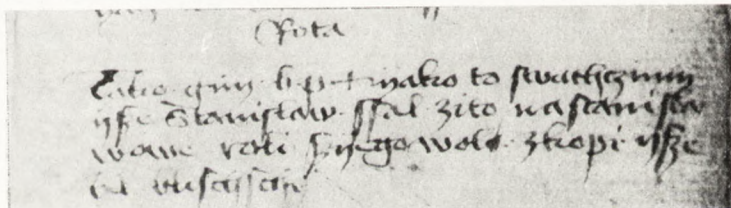 Rota
Tako gim b p t yako to swathczimy
ysze Stanislaw ssal zito nastanisla
wowe roli syego wolø zkopi ysze